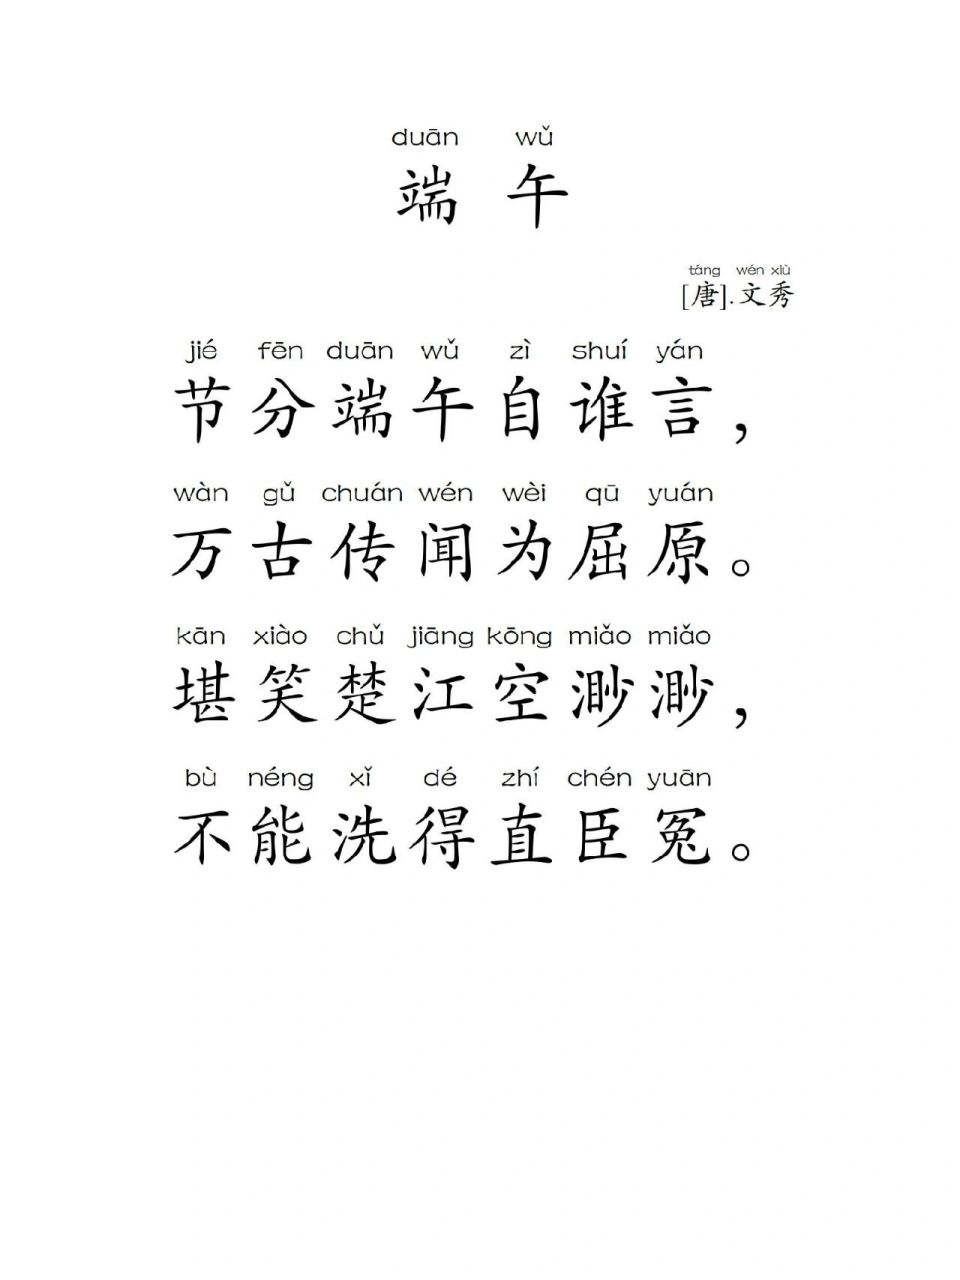 duān wǔ
端 午
táng wén xiù
[唐].文秀
jié fēn duān wǔ zì shuí yán
节分端午自谁言，
wàn gǔ chuán wén wèi qū yuán
万古传闻为屈原。
kān xiào chǔ jiāng kōng miǎo miǎo
堪笑楚江空渺渺，
bù néng xǐ dé zhí chén yuān
不能洗得直臣冤。